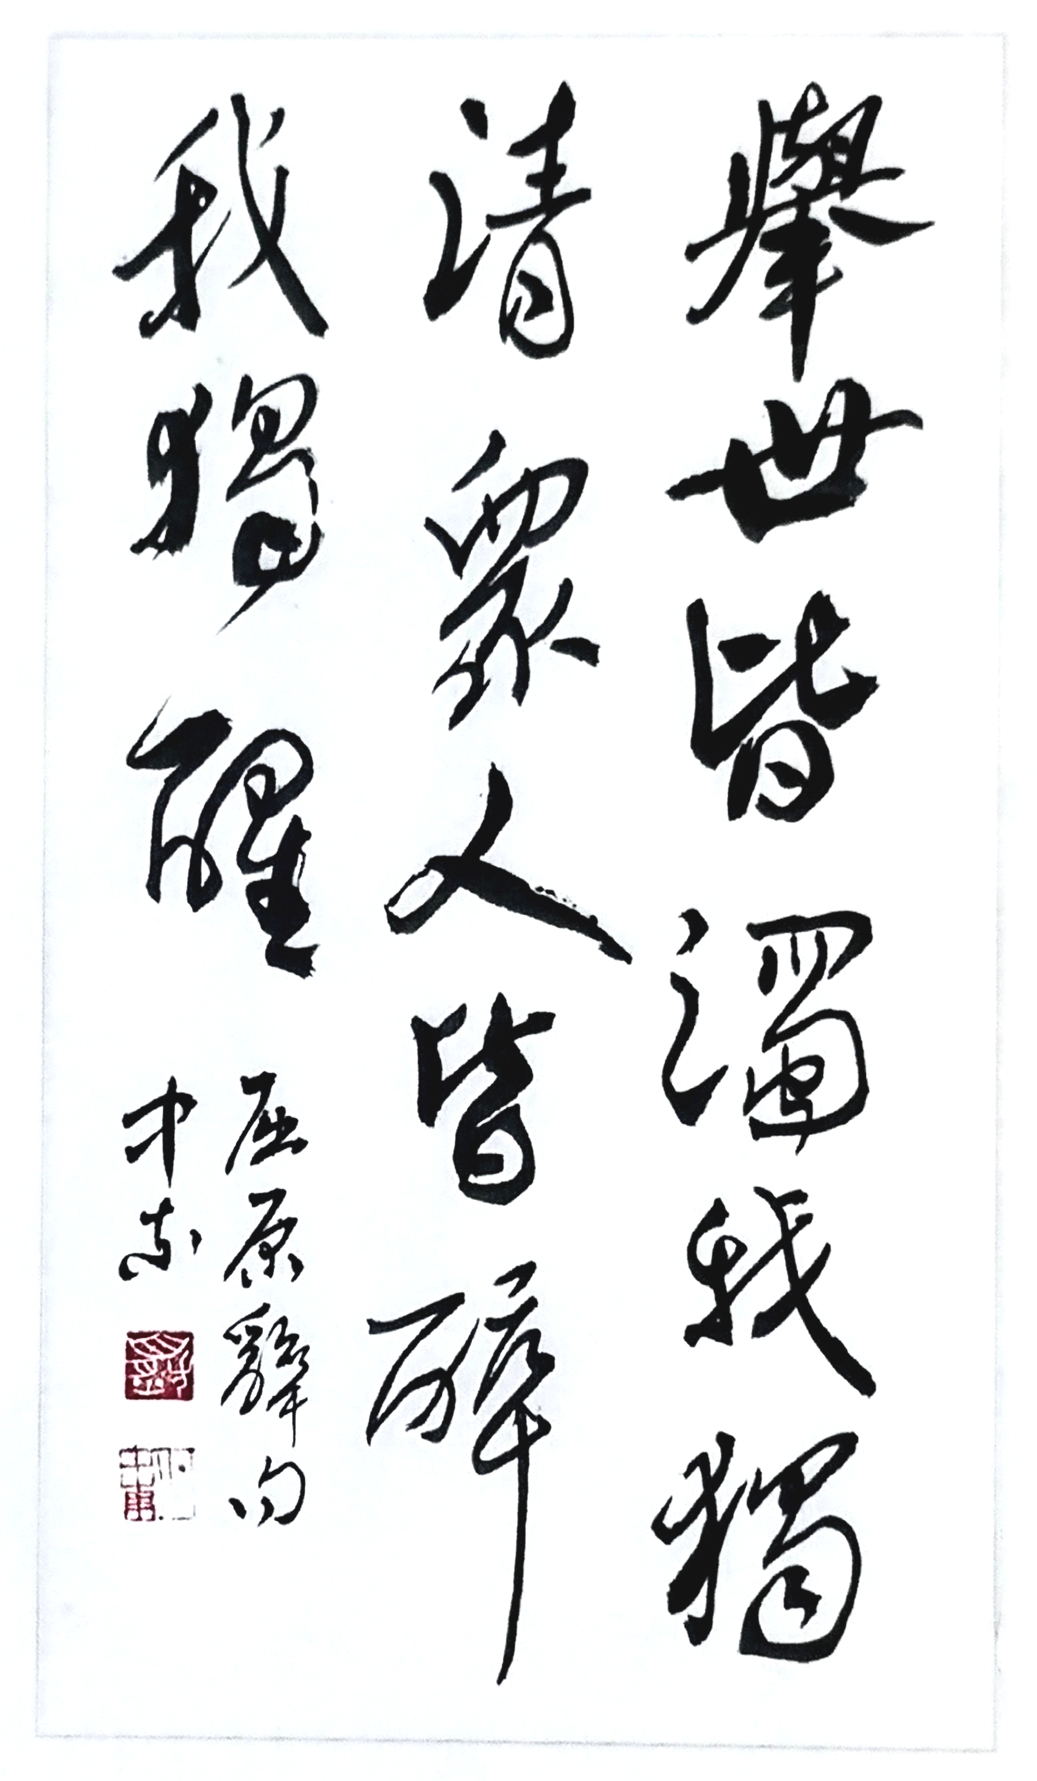 舉世皆濁我獨
清衆人皆醉
我獨醒
屈原辭句